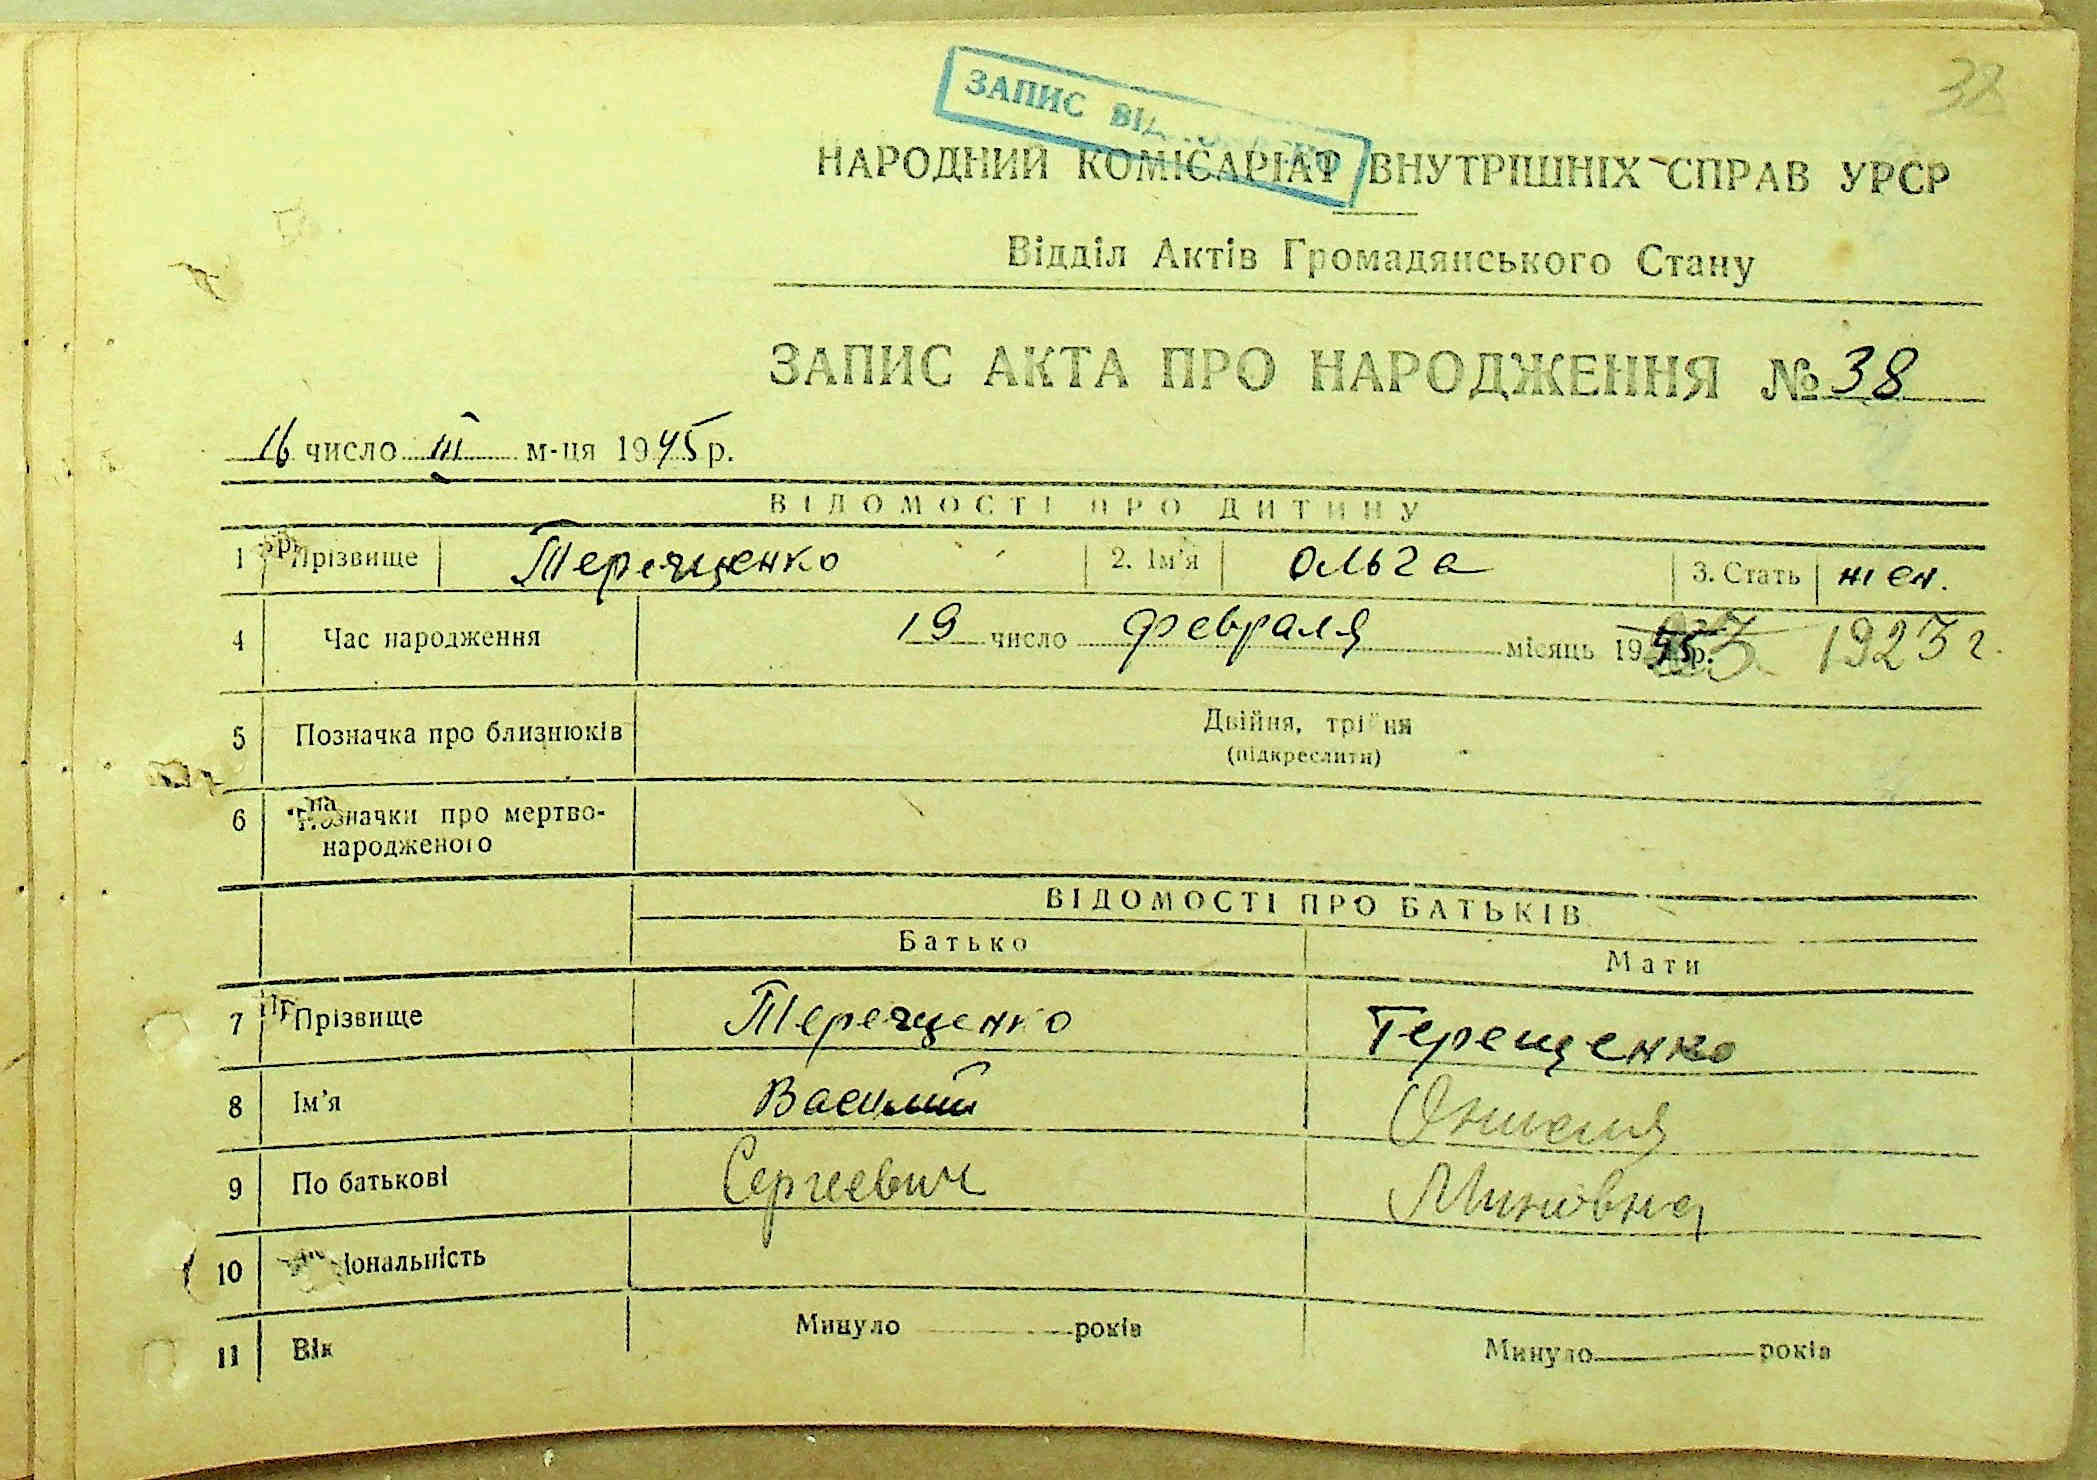 38
ЗАПИС ВІД
НАРОДНИЙ КОМІСАРІАТ ВНУТРІШНІХ СПРАВ УРСР
Відділ Актів Громадянського Стану
ЗАПИС АКТА ПРО НАРОДЖЕННЯ № 38
16 число III м-ця 1945 р.
ВІДОМОСТІ ПРО ДИТИНУ
1 Прізвище Терещенко 2. Ім'я Ольга 3. Стать жен.
4 Час народження 19 число февраля місяць 1945 р. 1923 г.
5 Позначка про близнюків Двійня, трійня
(підкреслити)
6 Позначки про мертво-
народженого
ВІДОМОСТІ ПРО БАТЬКІВ
Батько Мати
7 Прізвище Терещенко Терещенко
8 Ім'я Василий
9 По батькові Сергеевич Миновна
10 Національність
11 Вік Минуло років Минуло років